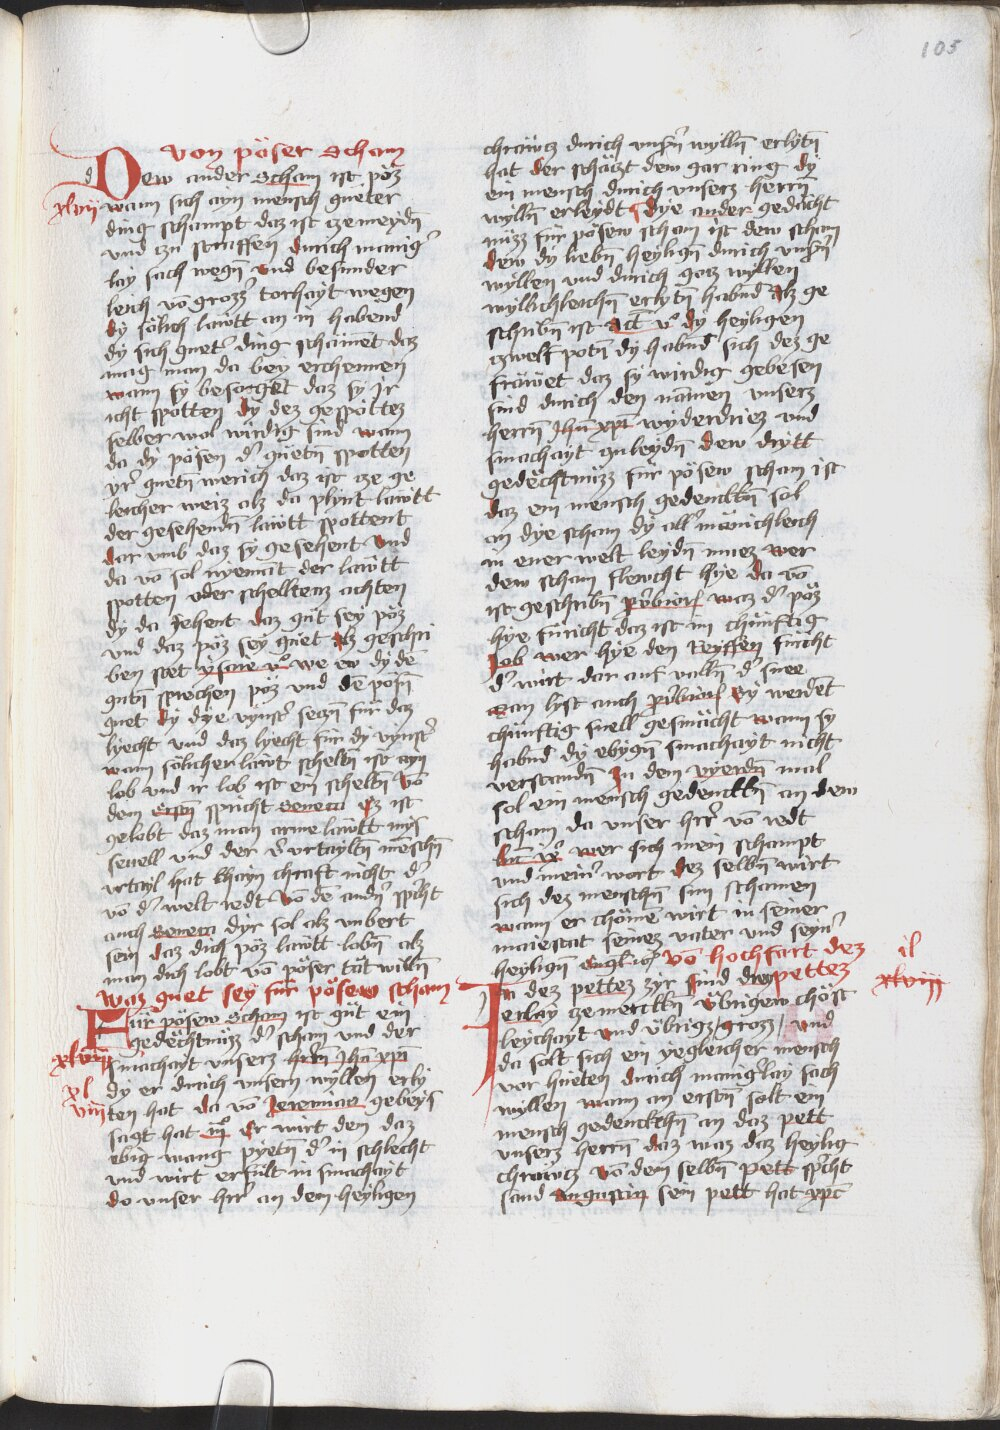 105
Von pöser scham
Dew ander scham ist pöz
xlvij
wann sich ayn mensch gueter
ding schampt daz ist ze meydn̄
vnd czu straffen durich maniger
lay sach wegn̄ vnd besunder
leich vō grozzer torhayt wegen
dy sölich läwtt an in habend
dy sich gueter ding schäment daz
mag man da bey erchennen
wann sy besorget daz sy ir
icht spotten dy dez gespöttez
selber wol wirdig sind wann
da dy pösen der guetn̄ spotten
yrer guetn̄ werich daz ist cze ge
leicher weiz alz da plynt läwtt
der gesehendn̄ läwtt spottent
dar vmb daz sy gesehent vnd
da vō sol nyemāt der läwtt
spotten oder scheltenz achten
dy da Jehent daz güt sey pöz
vnd daz pöz sey guet alz geschri
ben stet ysaie vo we ew dy dē
gutn̄ sprechen pöz vnd dē pösn̄
guet dy dye vynster seczn̄ für daz
lyecht vnd daz lyecht für dy vinster
wann sölicher läwt scheltn̄ ist ayn
lob vnd ir lob ist ein scheltn̄ vō
dem ersten spricht Seneca Ez ist
gelobt daz man arme läwtt mis
seuell vnd der v̄urtayltn̄ menschn̄
vrtayl hat khayn chraft nicht der
vō der welt redt vō dē andern spricht
auch Seneca dyr sol alz vnbert
sein daz dich pöz läwtt lobn̄ alz
man dich lobt vō pöser tät willn̄
Waz guet sey für pösew scham
Für pösew scham ist güt ein
gedëchtnüzz der scham vnd der
xlviij
smachayt vnserz hern̄ Jhū xp̄i
dy er durich vnsern wyllen erly
xl
viiij
ten hat da vō Jeremiaz gebeys
sagt hat iijo Er wirt den daz
ebig wang pyetn̄ der in schlecht
vnd wirt erfült in smachayt
do vnser herr an dem heyligen
chräwcz durich vnsern wylln̄ erlytn̄
hat der schäczt dew gar ring dy
ein mensch durich vnserz herrn̄
wylln̄ erleydt dye ander gedächt
nüzz für pösew scham ist dew scham
dew dy liebn̄ heylign̄ durich vnsern
wyllen vnd durich gocz wyllen
wyllichleichn̄ erlytn̄ habnd Alz ge
schribn̄ ist Act̄ vo dy heyligen
czwelf potn̄ dy habnd sich dez ge
fräwet daz sy wirdig gebesen
sind durich den namen vnserz
herrn̄ Jhū xp̄i wyderdriez vnd
smachayt zuleydn̄ dew drytt
gedëchtnüzz für pösew scham ist
daz ein mensch gedenckn̄ sol
an dye scham dy aller mänichleich
in ener welt leydn̄ muez wer
dew scham fleucht hye da vō
ist geschribn̄ prouerbiorum waz der pöz
hye füricht daz ist im chünftig
Job wer hye den Reyffen fürcht
der wirt dar auf valln̄ der snee
Man lyst auch prouerbiorum Sy werdēt
chünftig snell gesmächt wann sy
habnd dy ebygn̄ smachayt nicht
verstandn̄ zu dem vyerdn̄ mal
sol ein mensch gedenckn̄ an dew
scham da vnser herr vō redt
luc ixo wer sich mein schampt
vnd meiner wort dez selbn̄ wirt
sich dez menschn̄ sun schamen
wann er chöme wirt in seiner
maiestat seinez vater vnd seyner
heylign̄ engl Von hochfart dez
pettez
il
xlviij
In dez pettez zyr sind drey
erlay ze merckn̄ übrigew chöst
leychayt vnd übrigz grozz vnd
da solt sich ein yegleicher mensch
vor hüeten durich maniglay sach
willen wann an erstn̄ solt ein
mensch gedenckn̄ an daz pett
vnserz herrn̄ daz waz daz heylig
chräwcz vō dem selbn̄ pett spricht
sand Augustin sein pett hat xp̄c